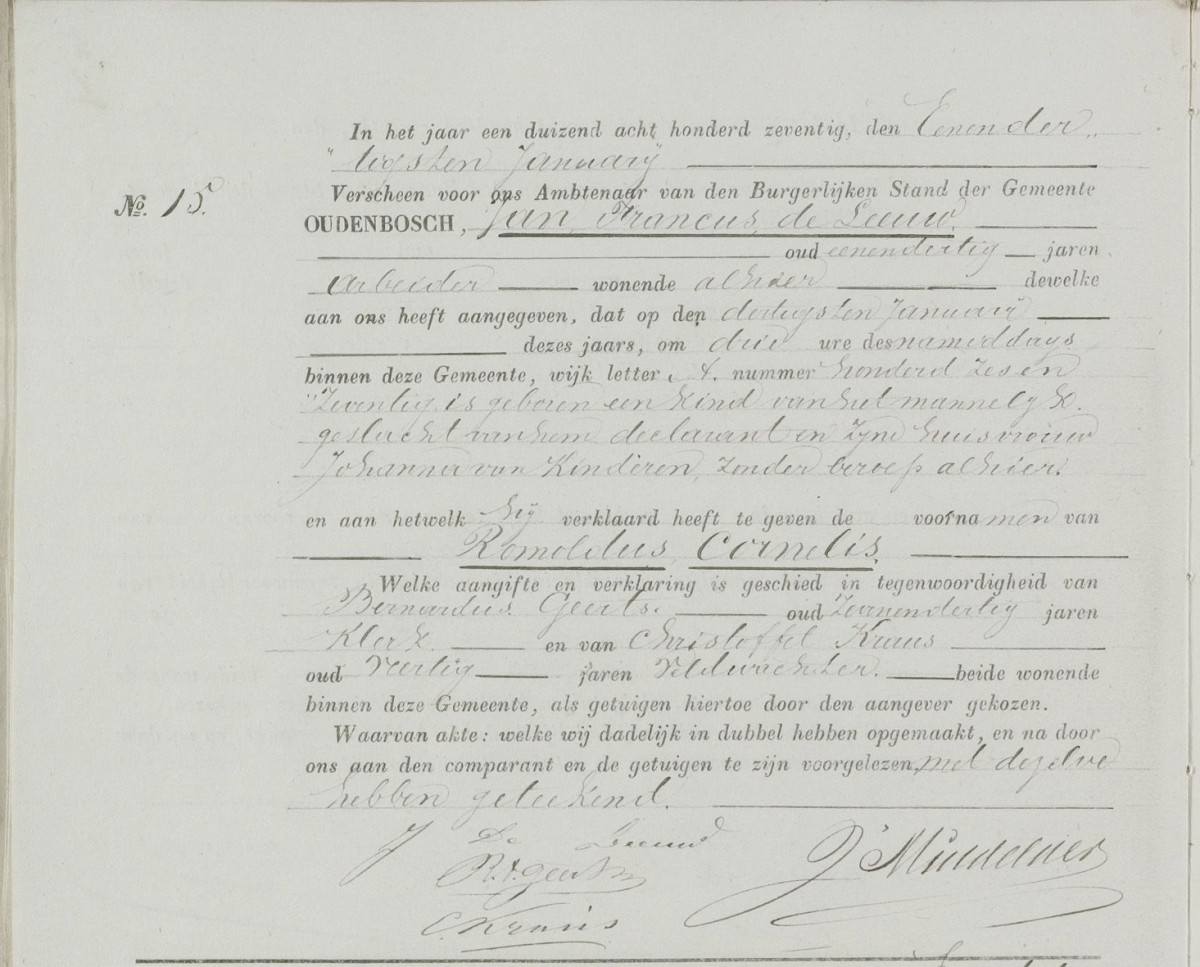 In het jaar een duizend acht honderd zeventig, den Eenender„
„tigsten Januarij
No. 15.
Verscheen voor ons Ambtenaar van den Burgerlijken Stand der Gemeente
OUDENBOSCH, Jan Francus, de Leeuw.
oud eenendertig jaren
Arbeider wonende alhier dewelke
aan ons heeft aangegeven, dat op den dertigsten Januarij
dezes jaars, om drie ure des namiddags
binnen deze Gemeente, wijk letter A. nummer honderd zes en
„Zeventig is geboren een kind van het mannelijk
geslacht van hem declarant en zijne huisvrouw
Johanna van Kinderen, zonder beroep alhier.
en aan hetwelk hij verklaard heeft te geven de voornamen van
Romoldus, Cornelis,
Welke aangifte en verklaring is geschied in tegenwoordigheid van
Bernardus Geerts. oud Zevenendertig jaren
Klerk en van Christoffel Kraus
oud Veertig jaren Veldwachter. beide wonende
binnen deze Gemeente, als getuigen hiertoe door den aangever gekozen.
Waarvan akte: welke wij dadelijk in dubbel hebben opgemaakt, en na door
ons aan den comparant en de getuigen te zijn voorgelezen, met dezelve
hebben geteekend.
J De Leeuw
Geerts
C. Kraus